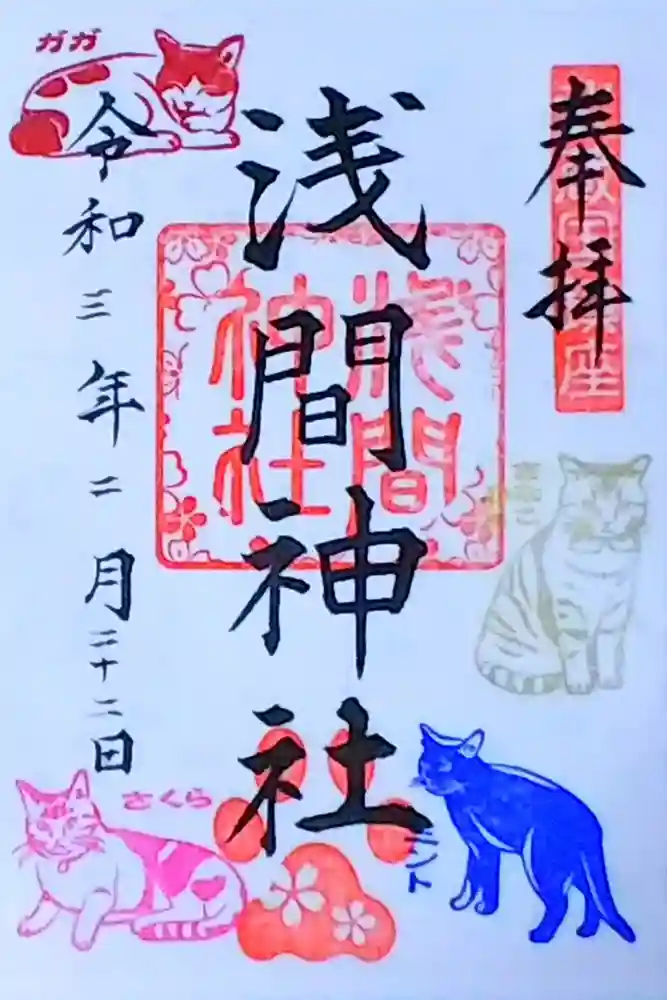 奉拝
浅間神社
令和三年二月二十二日
淺間
神社
ガガ
ミント
さくら